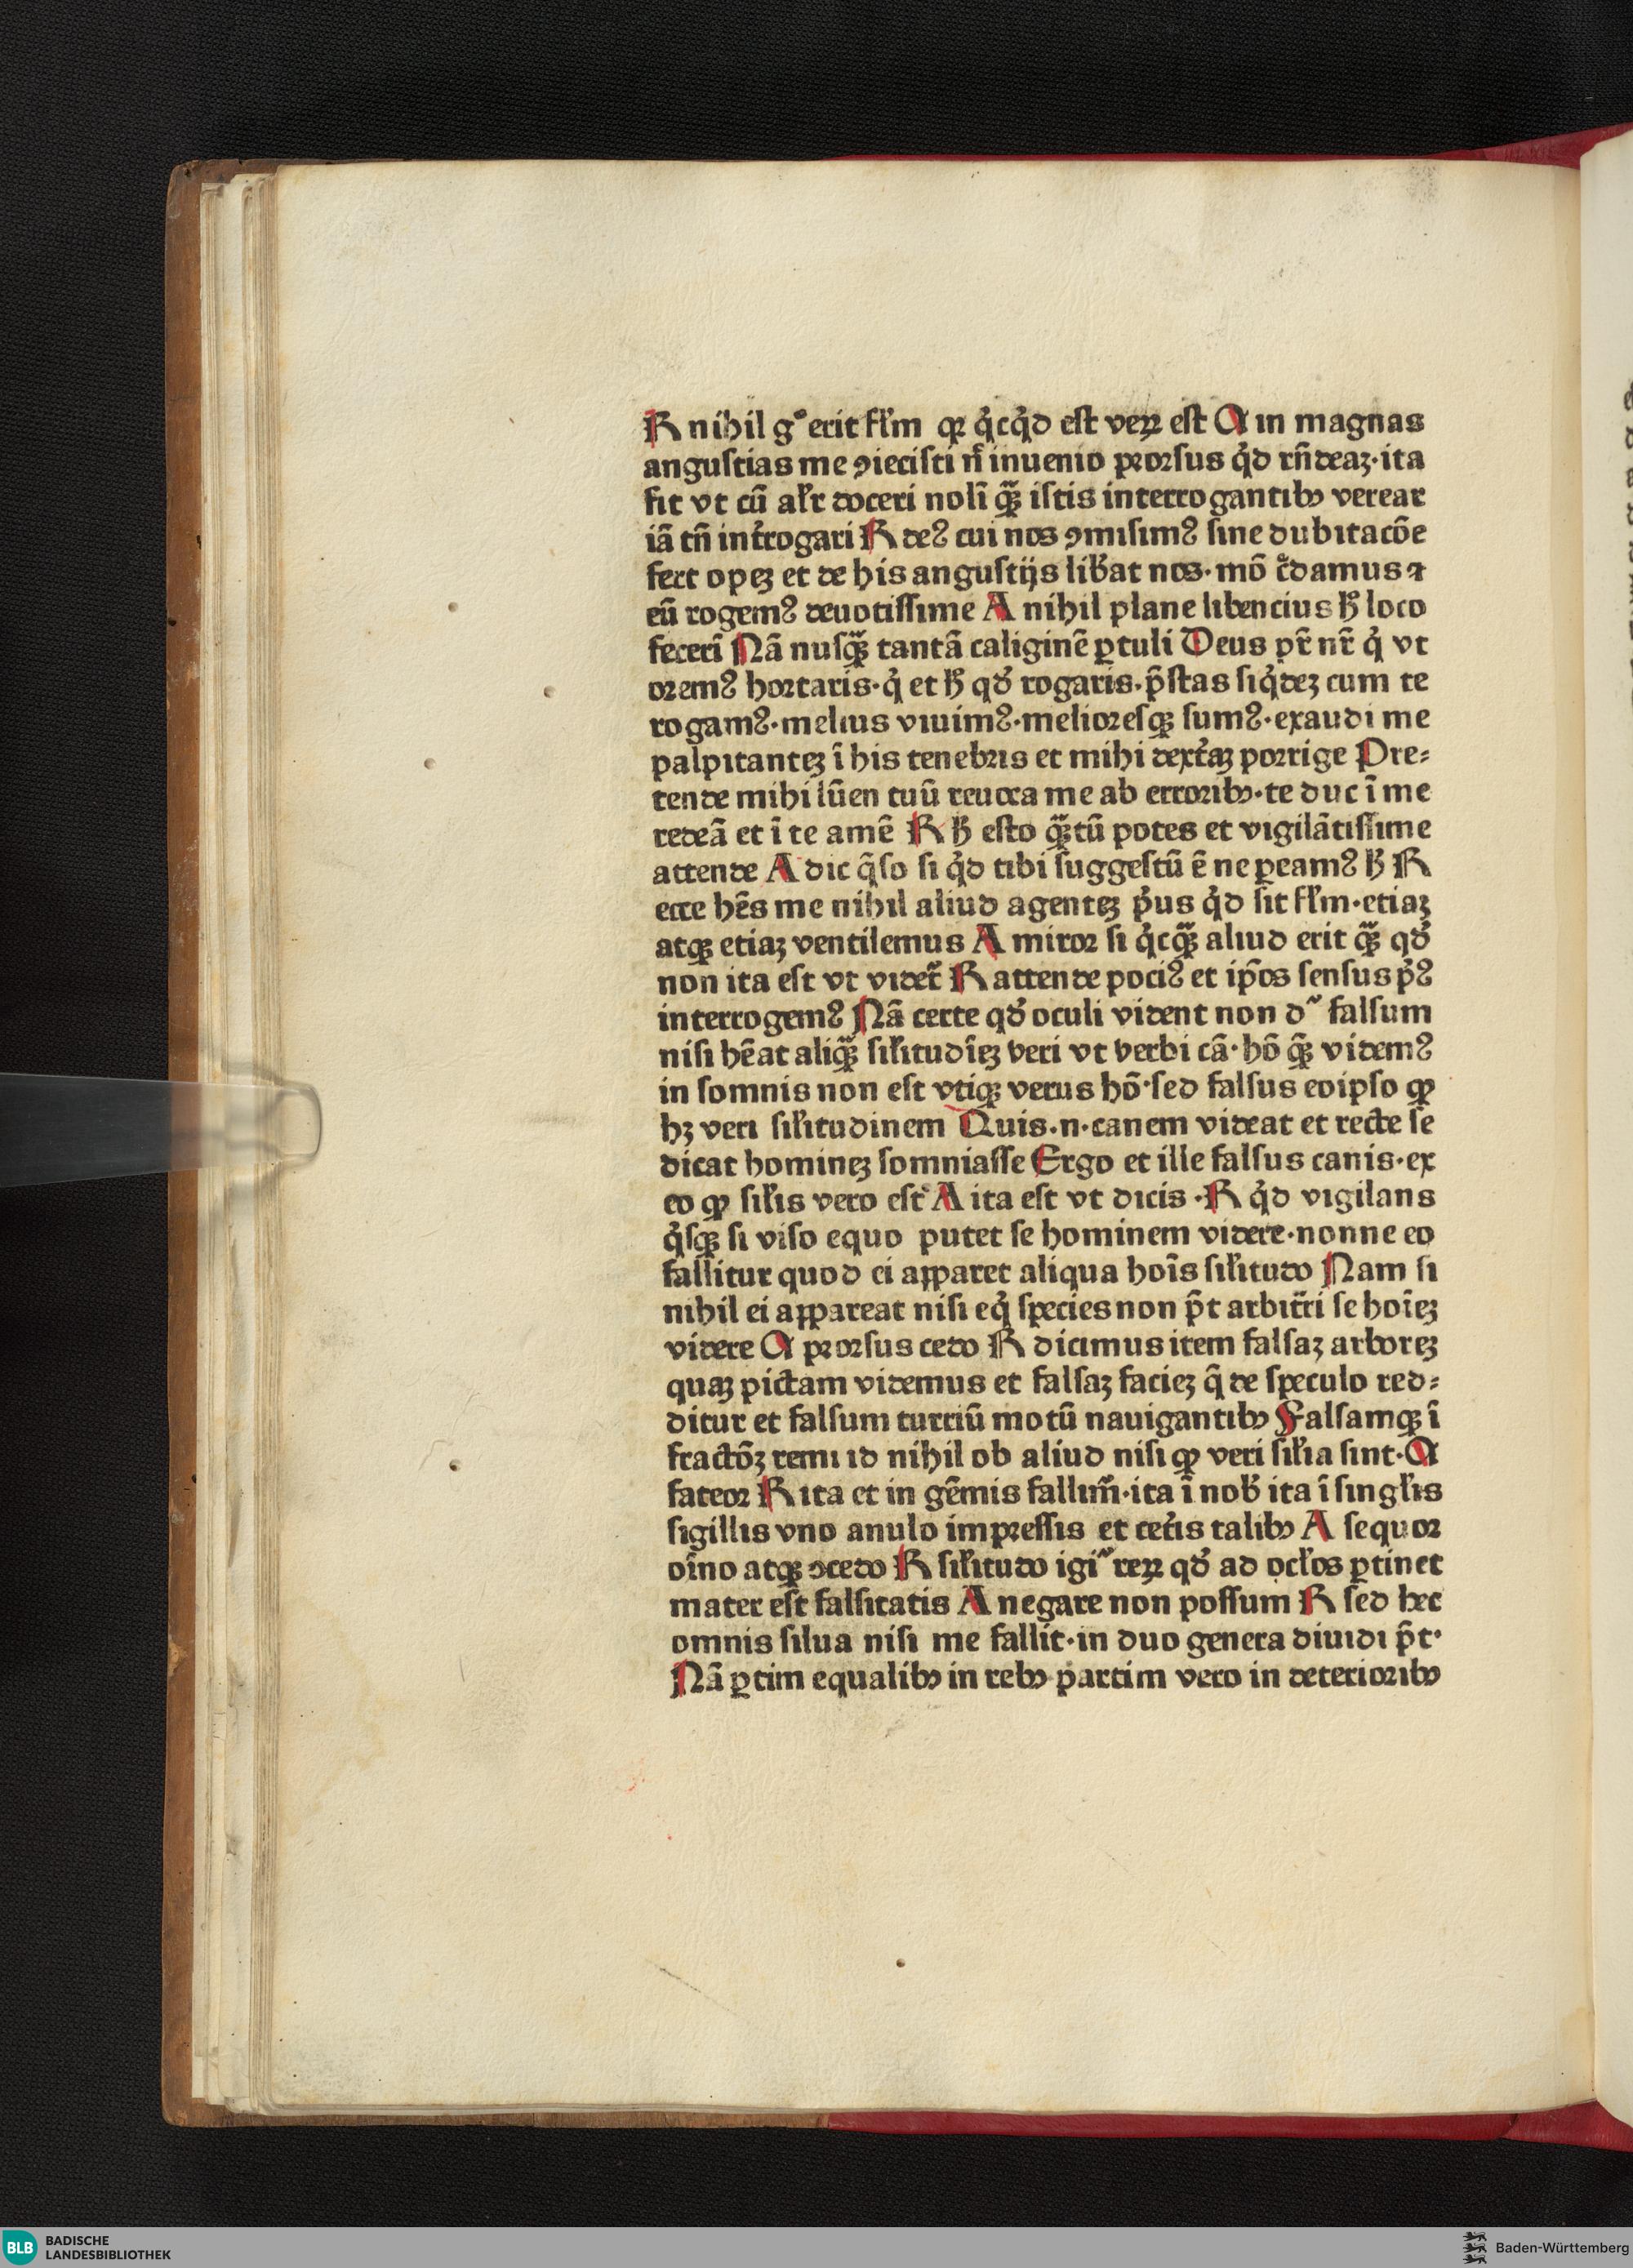 R nihil gͦ erit fľm qꝛ q̇cq̇d est veꝝ est A in magnas
angustias me ꝯiecisti n̄ inuenio prorsus q̇d rn̄deaꝫ·ita
fit vt cū alr̄ doceri noli ̄ qꝫ̄ istis interrogantibꝰ verear
iā tn̄ int̓rogari R deꝰ cui nos ꝯmisimꝰ sine dubitacōe
fert opeꝫ et de his angustijs lib̓at nos·mō c̓damus ⁊
eū rogemꝰ deuotissime A nihil plane libencius ħ loco
fecerī Nā nusqꝫ̄ tantā caliginē ꝑtuli Deus pr̄ nr̄ q̇ vt
oremꝰ hortaris·q̇ et ħ qd̓ rogaris·p̄stas siq̇deꝫ cum te
rogamꝰ·melius viuimꝰ·melioresqꝫ sumꝰ·exaudi me
palpitanteꝫ ī his tenebris et mihi dext̓aꝫ porrige Pre⸗
tende mihi lūen tuū reuoca me ab erroribꝰ·te duc ī me
redeā et ī te amē R ħ esto qꝫ̄tū potes et vigilātissime
attende A dic q̄so si q̇d tibi suggestū ē ne ꝑeamꝰ ħ R
ecce hēs me nihil aliud agenteꝫ p̓us q̇d sit fľm·etiaꝫ
atqꝫ etiaꝫ ventilemus A miror si q̇cqꝫ̄ aliud erit qꝫ̄ qd̓
non ita est vt videt̄ R attende pociꝰ et ip̄os sensus p̓ꝰ
interrogemꝰ Nā certe qd̓ oculi vident non d͛ falsum
nisi hēat aliqꝫ̄ siľitudīeꝫ veri vt verbi cā·hō qꝫ̄ videmꝰ
in somnis non est vtiqꝫ verus hō·sed falsus eoipso ꝙ
hꝫ veri siľitudinem Quis·n·canem videat et recte se
dicat homineꝫ somniasse Ergo et ille falsus canis·ex
eo ꝙ siľis vero est A ita est vt dicis·R q̇d vigilans
q̇sqꝫ si viso equo putet se hominem videre·nonne eo
fallitur quod ei apparet aliqua hoīs siľitudo Nam si
nihil ei appareat nisi eq̇ species non p̄t arbitr̄i se hoīeꝫ
videre A prorsus cedo R dicimus item falsaꝫ arboreꝫ
quaꝫ pictam videmus et falsaꝫ facieꝫ q̄ de speculo red⸗
ditur et falsum turriū motū nauigantibꝰ Falsamqꝫ ī
fractōꝫ remi id nihil ob aliud nisi ꝙ veri siľia sint·A
fateor R ita et in gēmis fallim̄·ita ī nob̓ ita ī singľis
sigillis vno anulo impressis et cet̓is talibꝰ A sequor
oīno atqꝫ ꝯcedo R siľitudo igi͛ reꝝ qd̓ ad ocľos ꝑtinet
mater est falsitatis A negare non possum R sed hec
omnis silua nisi me fallit·in duo genera diuidi p̄t·
Nā ꝑtim equalibꝰ in rebꝰ partim vero in deterioribꝰ
BLB BADISCHE
LANDESBIBLIOTHEK
Baden-Württemberg